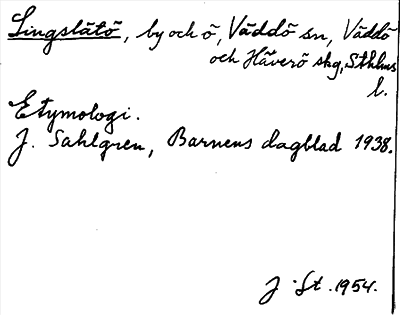 Lingslätö, by och ö, Väddö sn, Väddö
och Häverö skg, Sthlms
l.
Etymologi.
J. Sahlgren, Barnens dagblad 1938.
J. St. 1954.